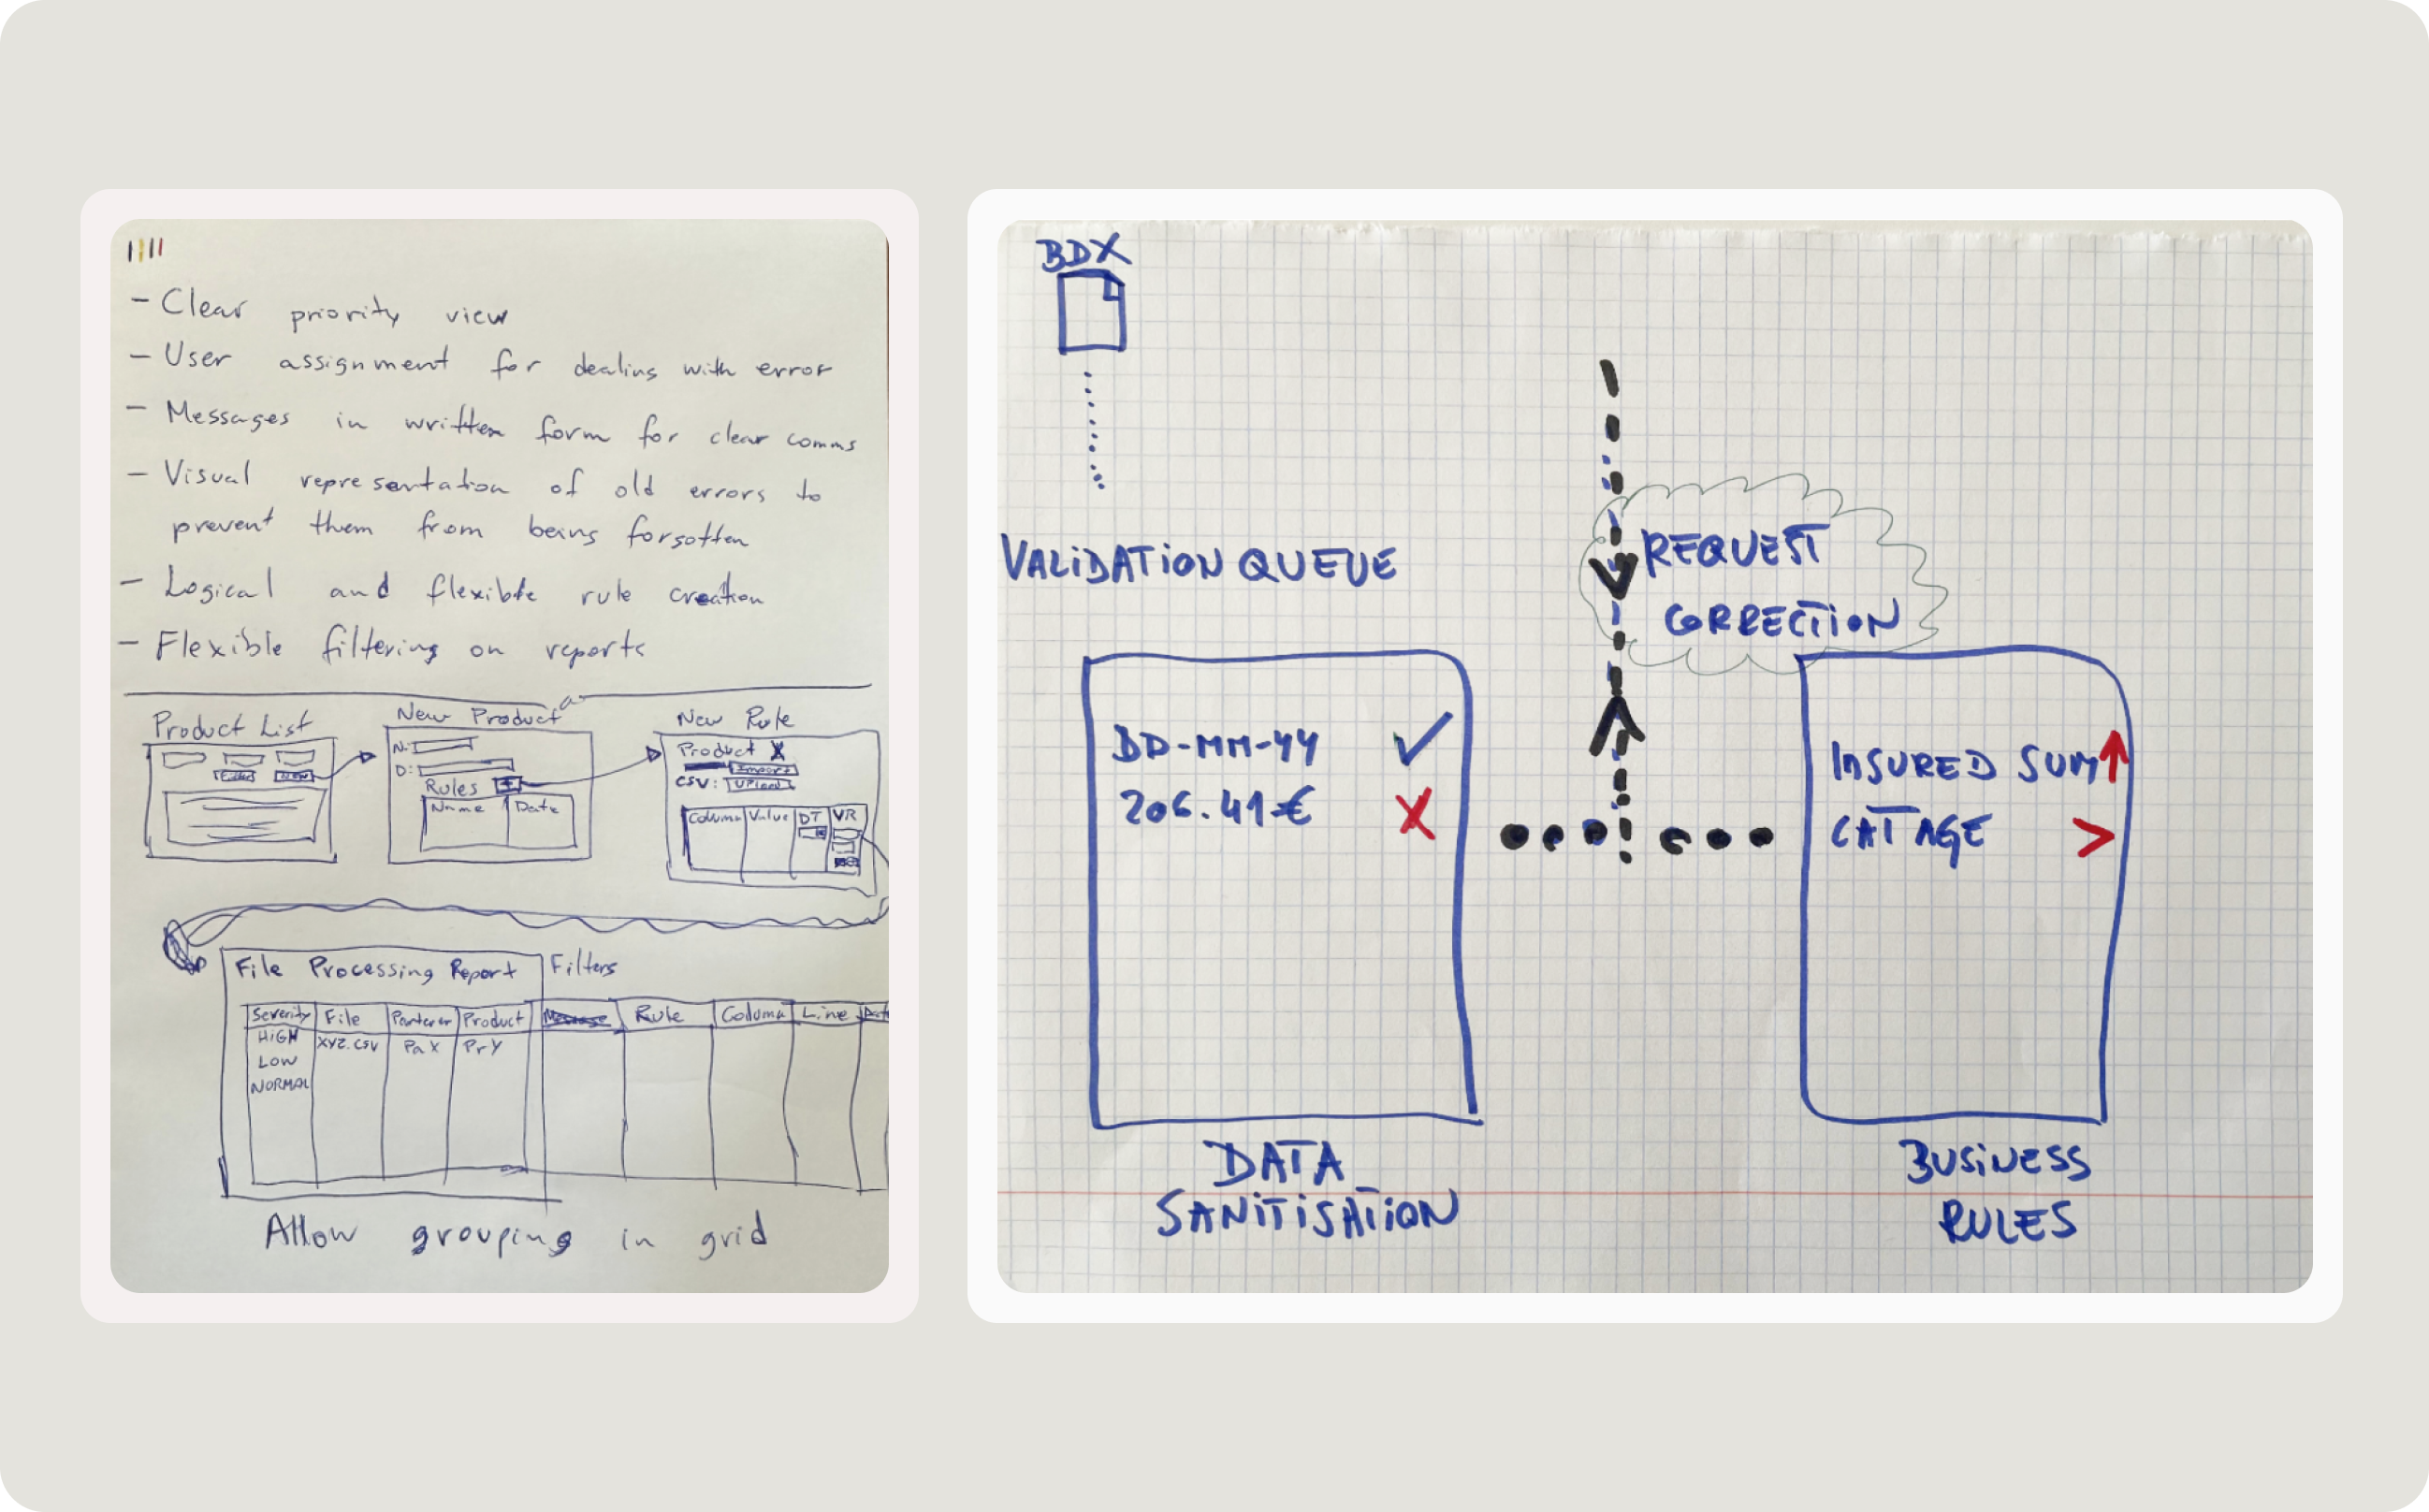 - Clear priority view
- User assignment for dealing with error
- Messages in written form for clear comms
- Visual representation of old errors to
prevent them from being forgotten
- Logical and flexible rule creation
- Flexible filtering on reports
Product List
Filter New
New Product
N:
D:
Rules +
Name Date
New Rule
Product X
Import
CSV: Upload
Column Value DT VR
File Processing Report Filters
Severity File Partener Product Message Rule Column Line
HIGH XYZ.CSV PaX PrY
LOW
NORMAL
Allow grouping in grid
BDX
VALIDATION QUEUE
REQUEST
CORRECTION
BD-MM-YY
206.41€
INSURED SUM
CAT AGE >
DATA
SANITISATION
BUSINESS
RULES